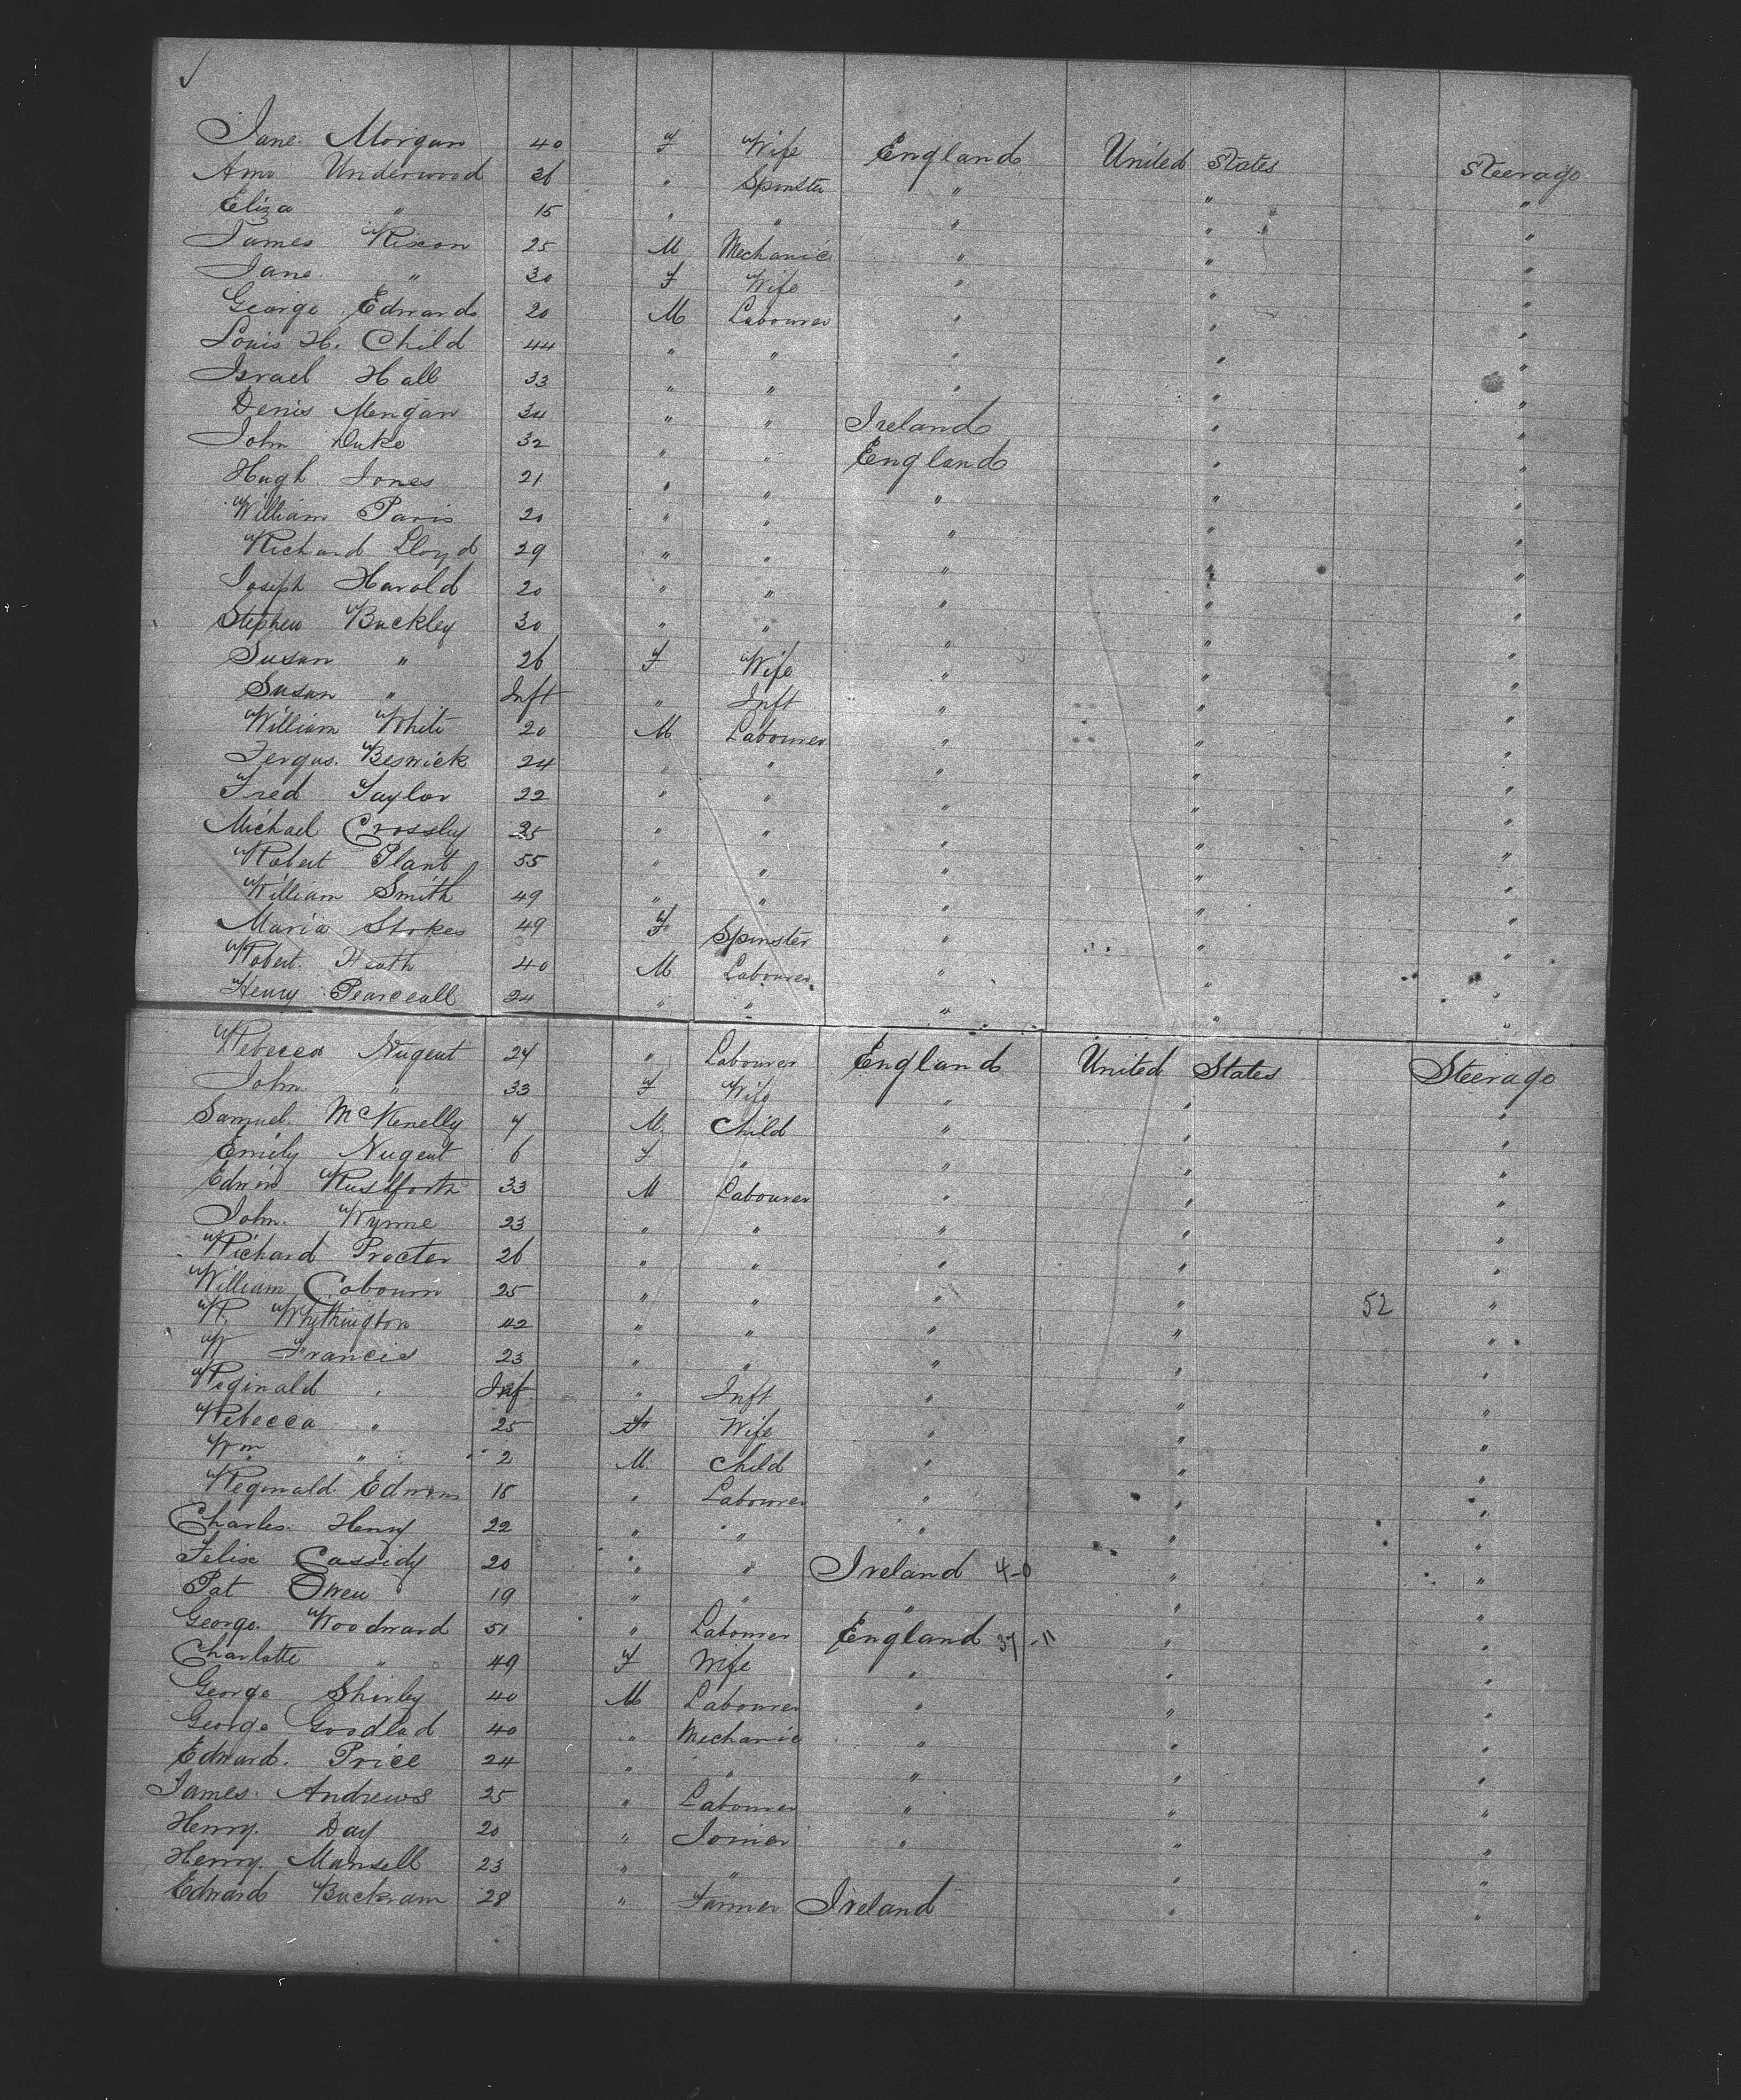 Jane Morgan 40 F Wife England United States Steerage
Ame Underwood 36 " Spinster " " "
Eliza " 15 " " " " "
James Rixon 25 M Mechanic " " "
Jane " 30 F Wife " " "
George Edwards 20 M Labourer " " "
Louis H. Child 44 " " " " "
Israel Hall 33 " " " " "
Denis Mengan 34 " " Ireland " "
John Duke 32 " " England " "
Hugh Jones 21 " " " " "
William Paris 20 " " " " "
Richard Lloyd 29 " " " " "
Joseph Harold 20 " " " " "
Stephen Buckley 30 " " " " "
Susan " 26 F Wife " " "
Susan " Inft " Inft " " "
William White 20 M Labourer " " "
Fergus Beswick 24 " " " " "
Fred Taylor 22 " " " " "
Michael Crossley 25 " " " " "
Robert Plant 55 " " " " "
William Smith 49 " " " " "
Maria Stokes 49 F Spinster " " "
Robert Heath 40 M Labourer " " "
Henry Pearceall 24 " " " " "
Rebecca Nugent 24 " Labourer England United States Steerage
John " 33 F Wife " " "
Samuel McKenelly 7 M Child " " "
Emily Nugent 6 F " " " "
Edwin Rushforth 33 M Labourer " " "
John Wynne 23 " " " " "
Richard Procter 26 " " " " "
William Cobourn 25 " " " " 52 "
R. Whythington 42 " " " " "
W Francis 23 " " " " "
Reginald " Inf " Inft " " "
Rebecca " 25 F Wife " " "
Wm " 2 M Child " " "
Reginald Edwins 18 " Labourer " " "
Charles Henry 22 " " " " "
Felix Cassidy 20 " " Ireland 4-0 " "
Pat Owen 19 " " " " "
George Woodward 51 " Labourer England 37-11 " "
Charlotte " 49 F Wife " " "
George Shirley 40 M Labourer " " "
George Goodlad 40 " Mechanic " " "
Edward Price 24 " " " " "
James Andrews 25 " Labourer " " "
Henry Day 20 " Joiner " " "
Henry Mansell 23 " " " "
Edward Buckram 28 " Farmer Ireland " "